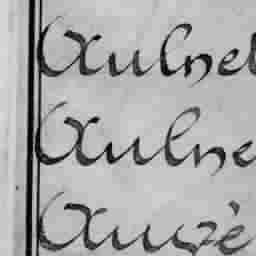 Aulnet
Aulne
Auzè